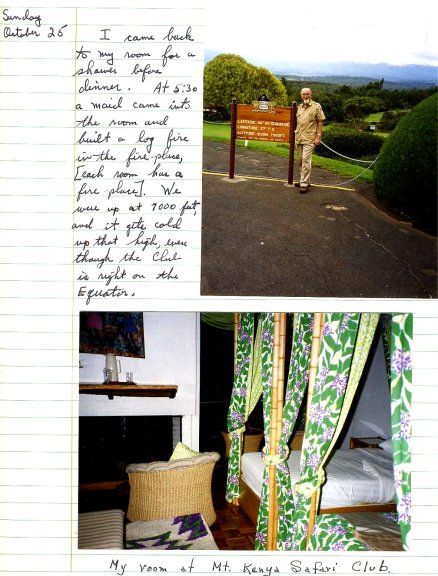 Sunday
October 25
I came back
to my room for a
shower before
dinner. At 5:30
a maid came into
the room and
built a log fire
in the fire-place,
[each room has a
fire place]. We
were up at 7000 feet,
and it gets cold
up that high, even
though the Club
is right on the
Equator.
LATITUDE 00°
LONGITUDE 37°
ALTITUDE
My room at Mt. Kenya Safari Club.